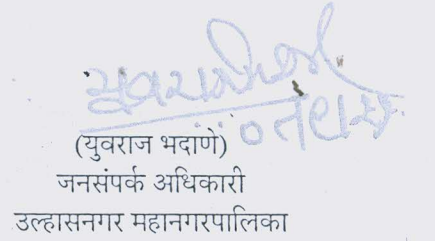 (युवराज भदाणे)
जनसंपर्क अधिकारी
उल्हासनगर महानगरपालिका